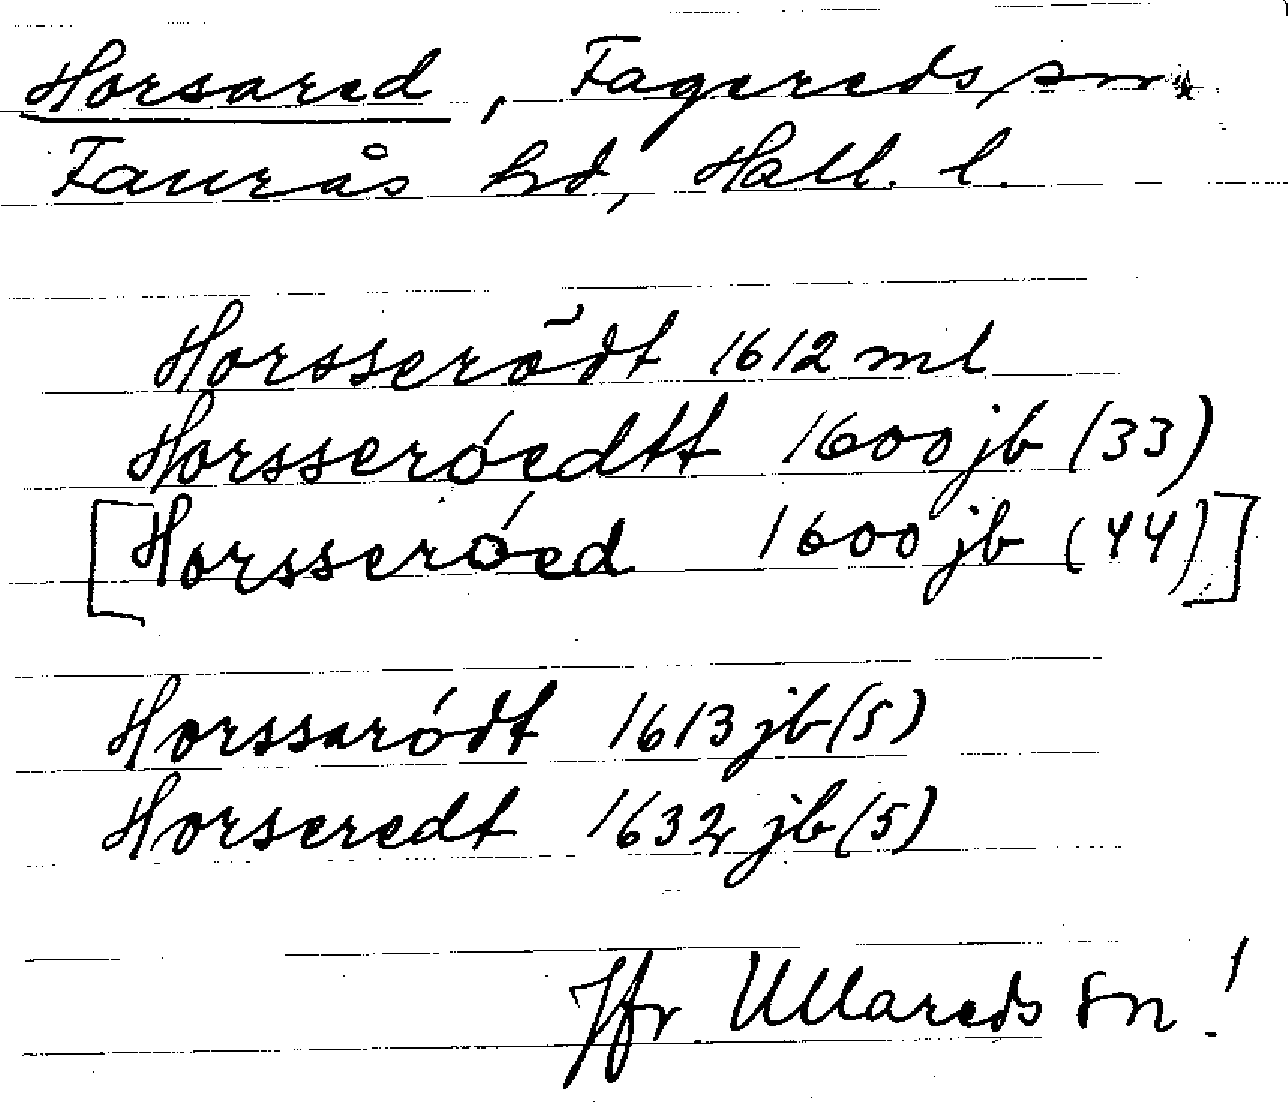 Horsared, Fagereds sn.
Faurås hd, Hall. l.
Horsserõdt 1612 ml
Horsseróedtt 1600 jb (33)
[Horsseróed 1600 jb (44)]
Horssaródt 1613 jb (5)
Horseredt 1632 jb (5)
Jfr Ullareds sn!